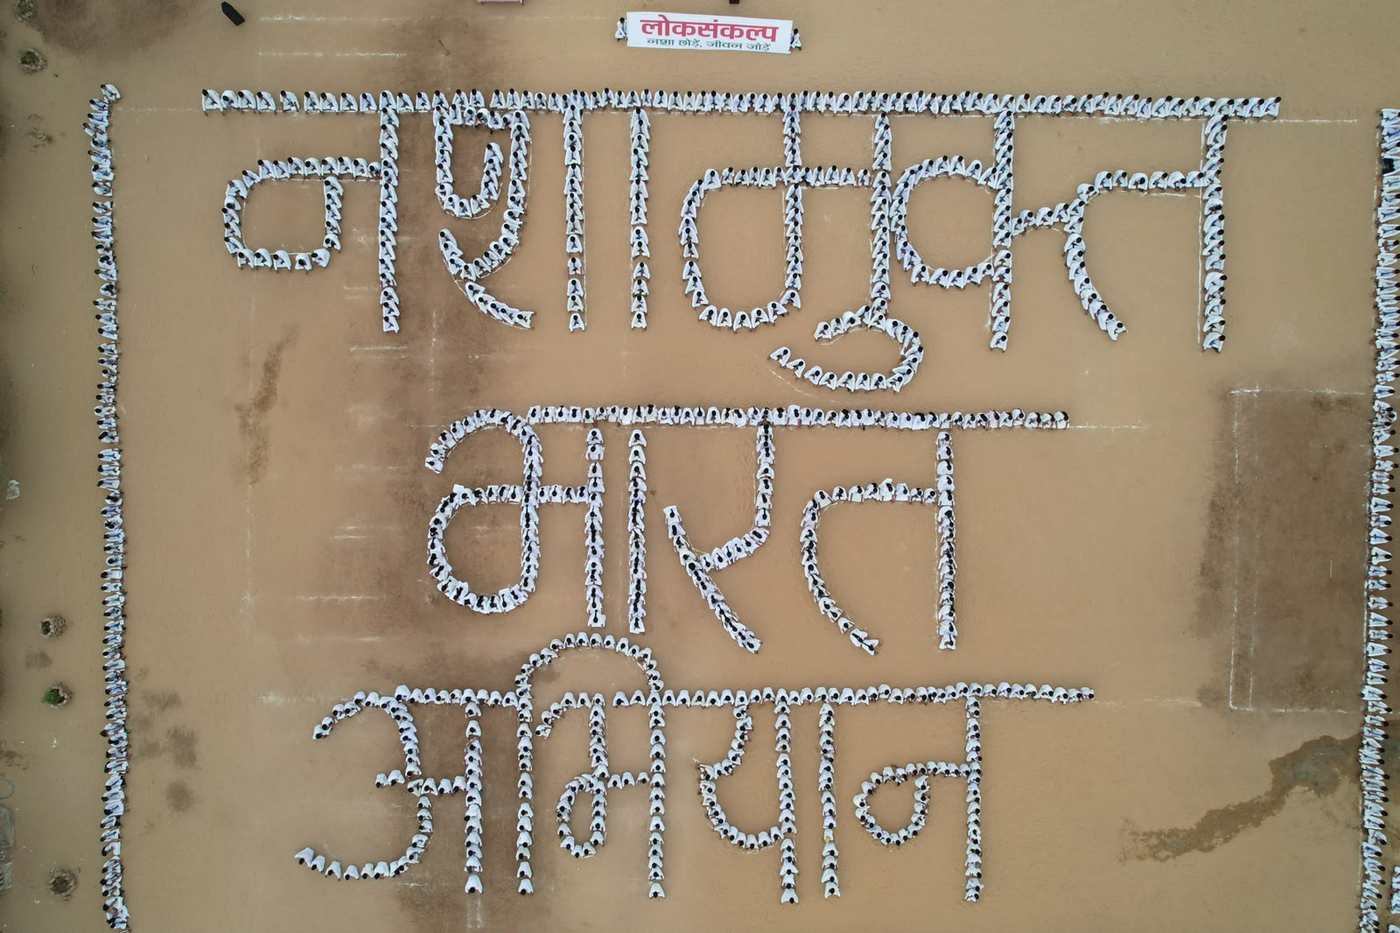 लोकसंकल्प
नशा छोड़ें, जीवन जोड़ें
नशामुक्त
भारत
अभियान